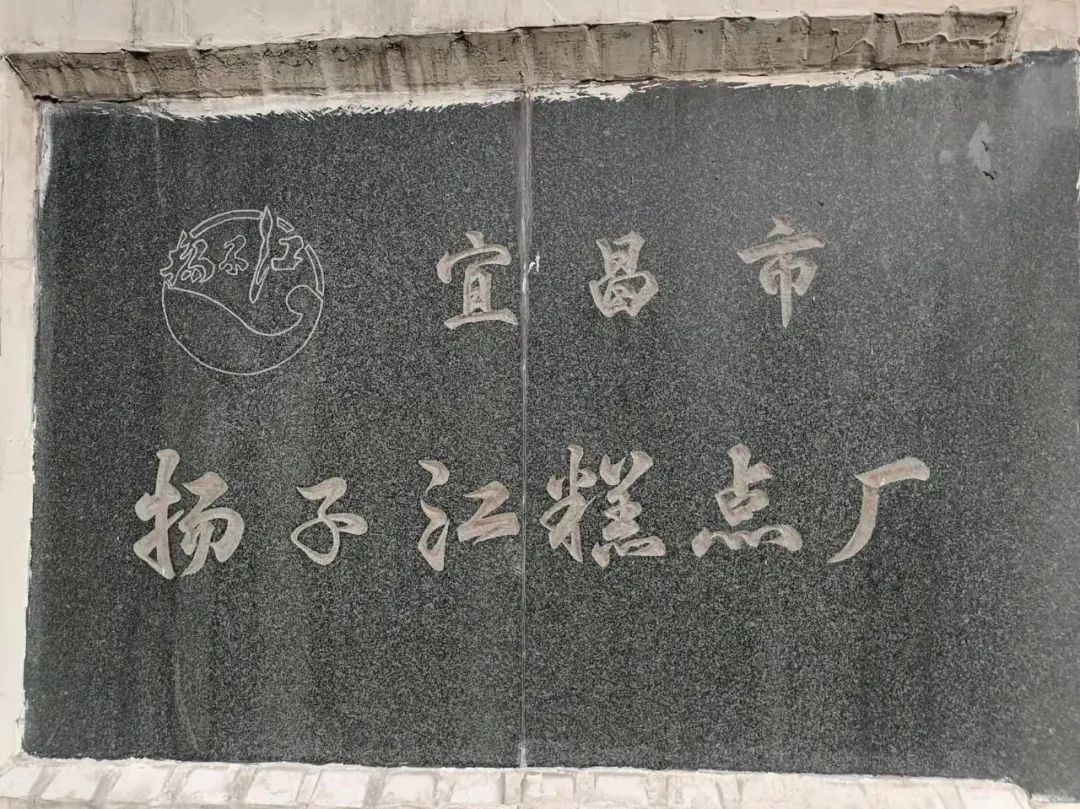 扬子江
宜昌市
扬子江糕点厂